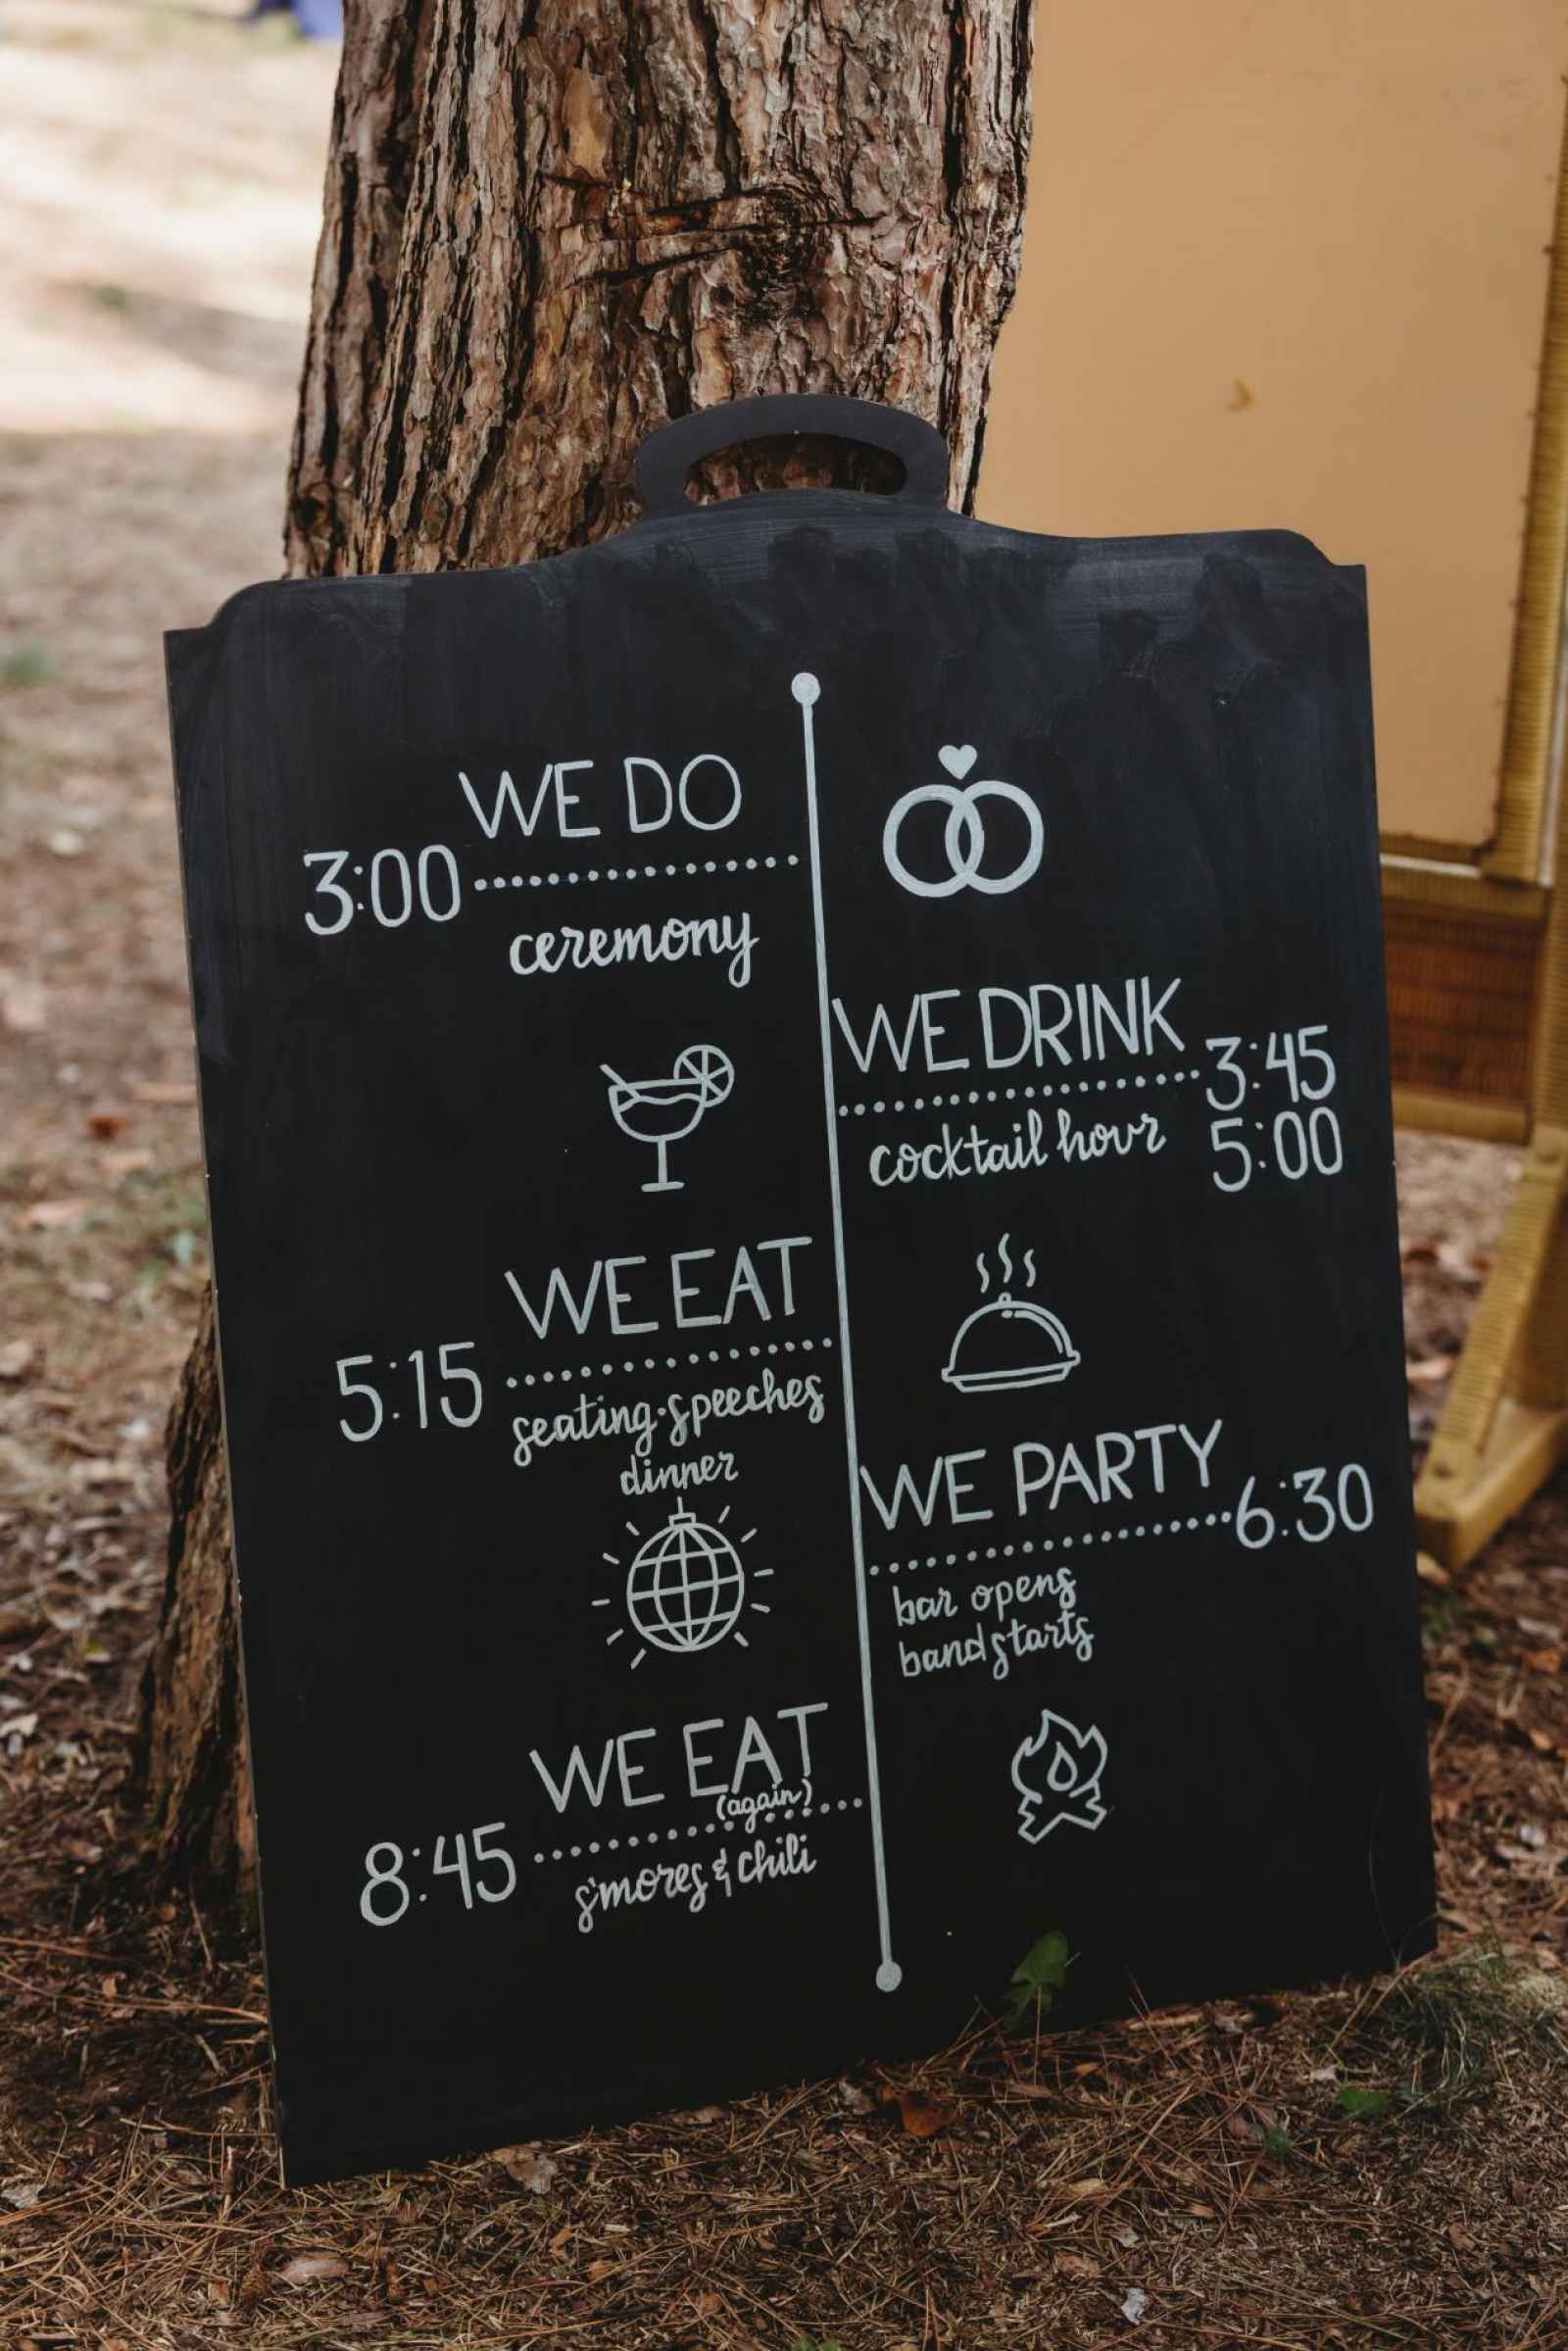 WE DO
3:00
ceremony
WE DRINK
3:45
5:00
cocktail hour
WE EAT
5:15
seating·speeches
dinner
WE PARTY
6:30
bar opens
band starts
WE EAT
(again)
8:45
s'mores & chili